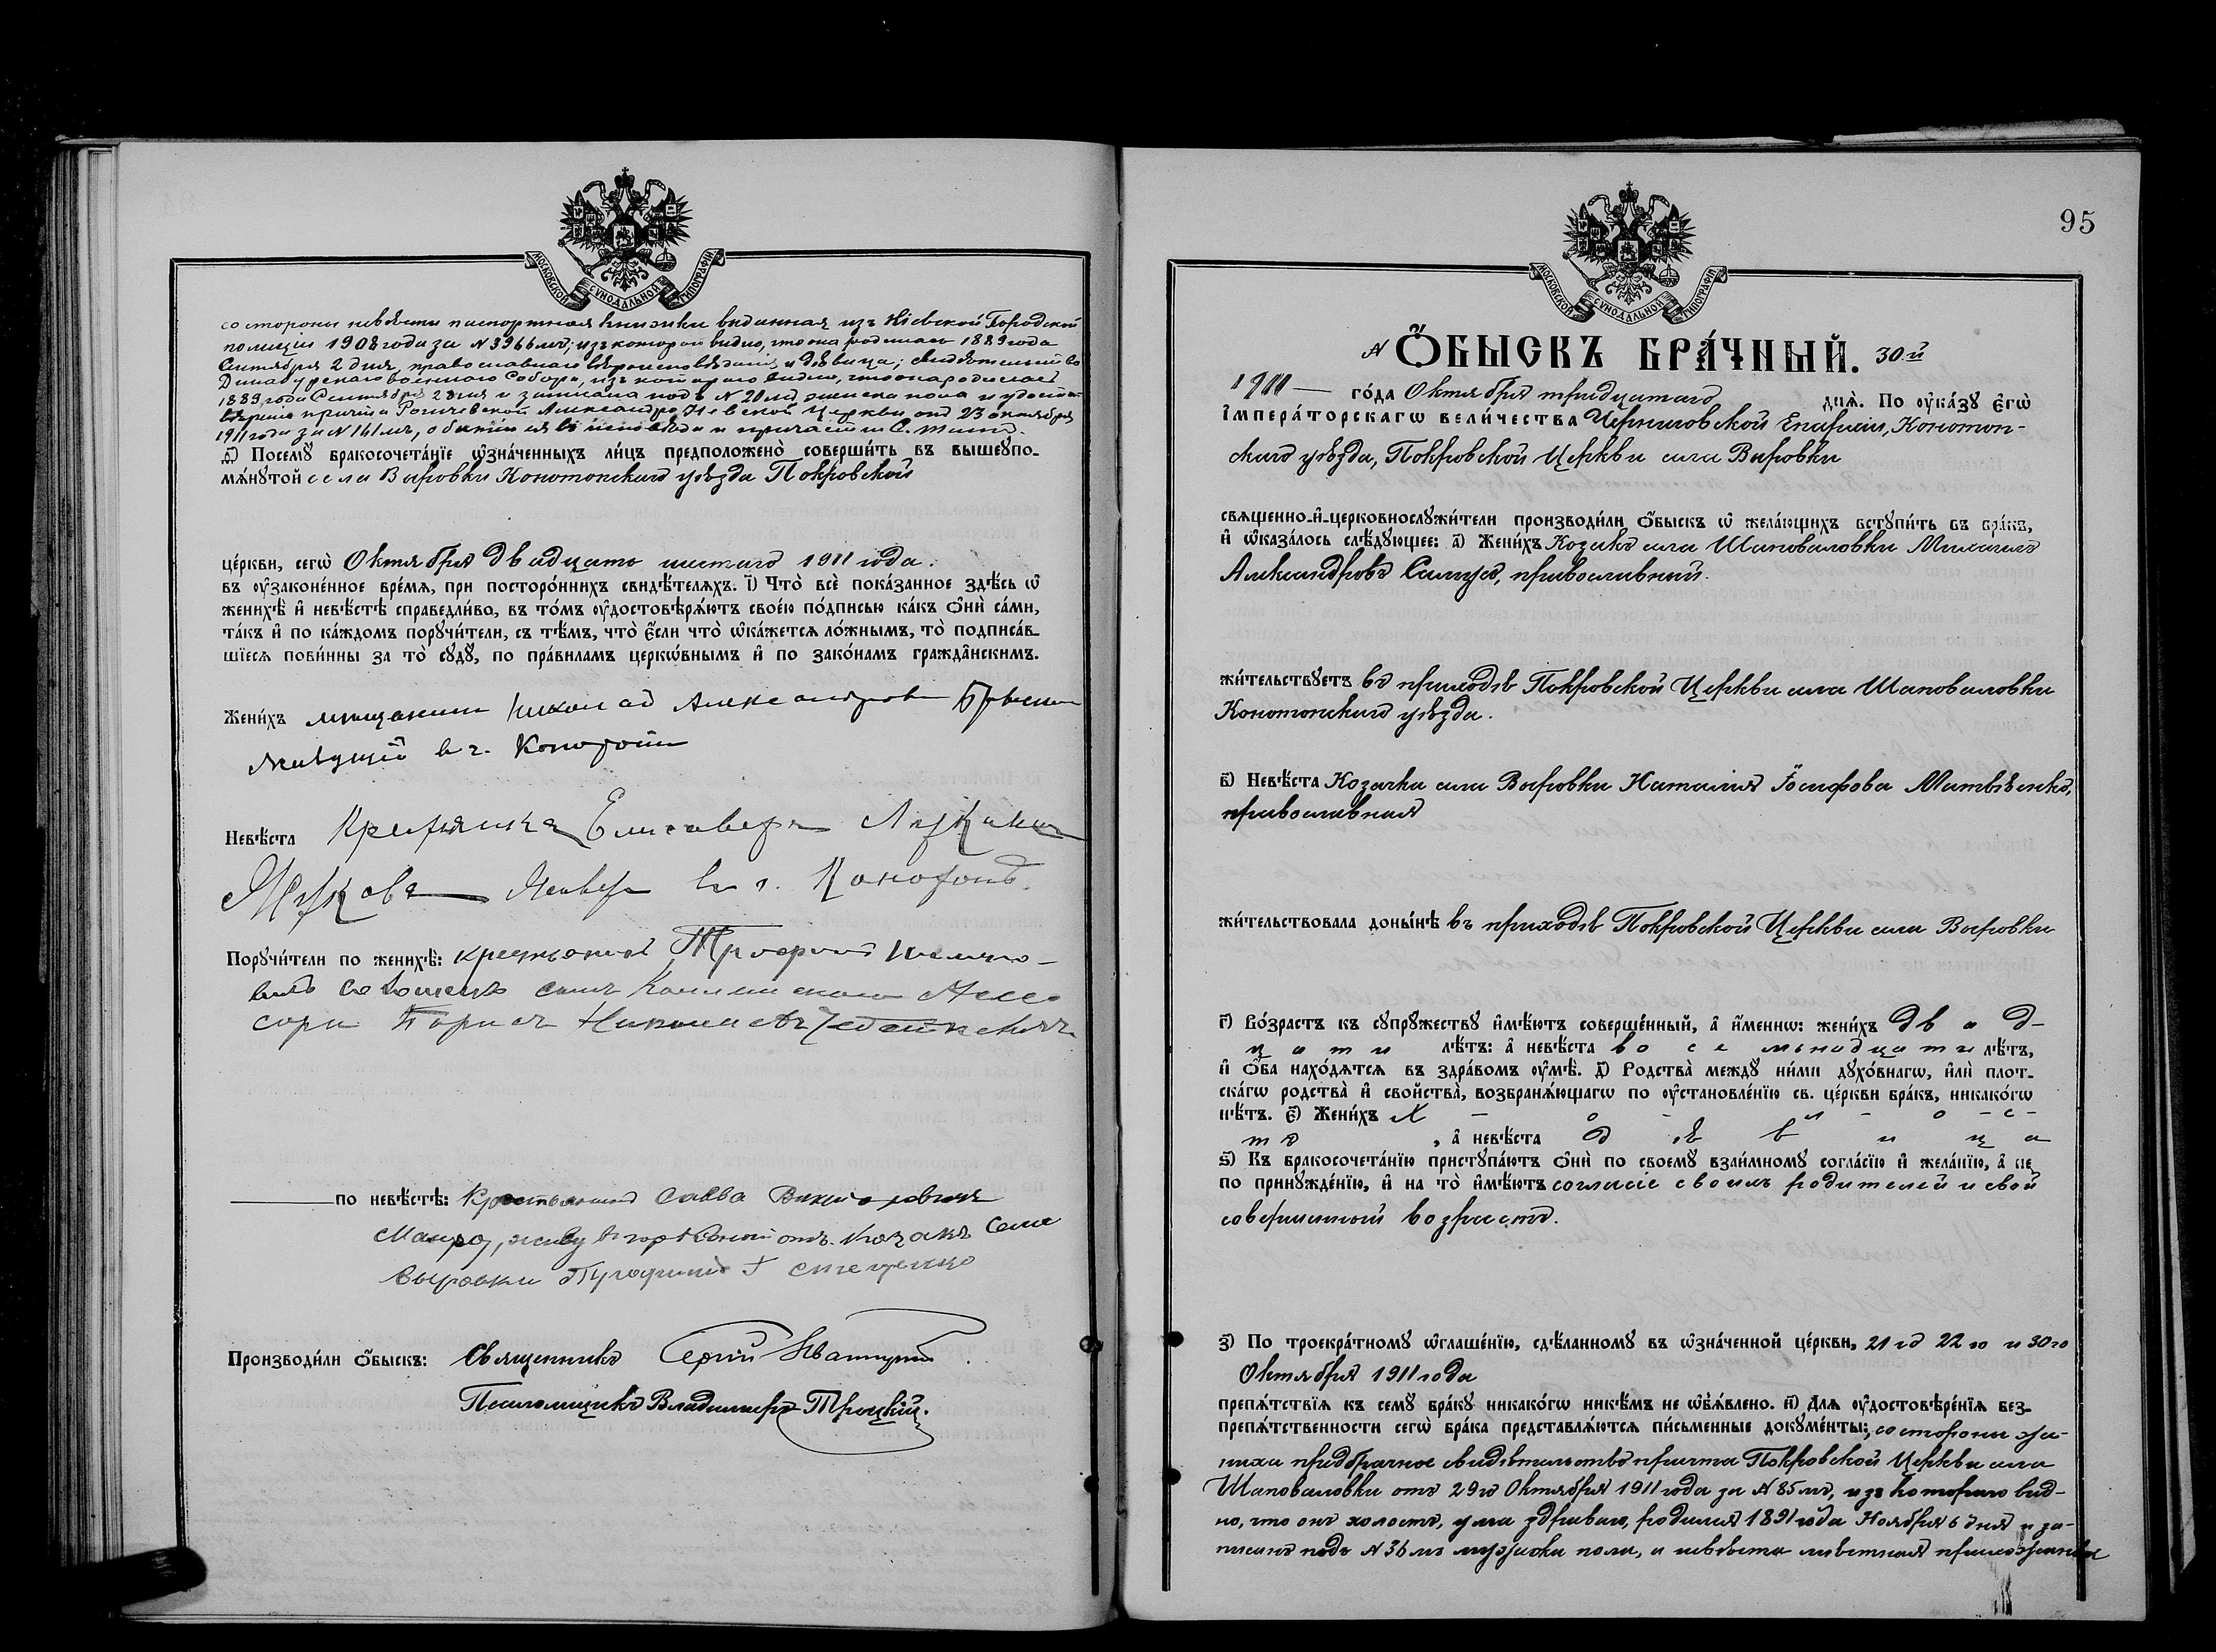 МОСКОВСКОЙ СѴНОДАЛЬНОЙ ТИПОГРАФІИ
со стороны невѣсты паспортная книжка выданная изъ Кіевской Городской
полиціи 1908 года за № 3966 мъ; изъ которой видно, что она родилась 1889 года
Сентября 2 дня, православнаго вѣроисповѣданія, дѣвица; свидѣтельство
Динабургскаго военнаго Собора, изъ котораго видно, что она родилась
1889 года Сентября 2 дня и записана подъ № 20 женска пола и удосто-
вѣреніе причта Рогичевской Александро Невской Церкви отъ 23 октября
1911 года за № 141 мъ, о бытіи ея въ исповѣди и причастіи С. Таинъ.
Посемꙋ̀ бракосочета́нїе ѡ҆зна́ченныхъ ли́цъ предположено̀ соверши́ть въ вышеꙋпо-
мѧ́нꙋтой села Вировки Конотопскаго уѣзда Покровской
це́ркви, сегѡ̀ Октября двадцать шестаго 1911 года.
въ ᲂу҆зако́ненное вре́мѧ, при посторо́ннихъ свидѣ́телѧхъ. і҃) Что̀ всѐ пока́занное здѣ́сь ѡ҆
женихѣ̀ и҆ невѣ́стѣ справедли́во, въ то́мъ ᲂу҆достовѣрѧ́ютъ свое́ю по́дписью ка́къ ѻ҆нѝ са́ми,
та́къ и҆ по ка́ждомъ порꙋчи́тели, съ тѣ́мъ, что̀ є҆́сли что̀ ѡ҆ка́жетсѧ ло́жнымъ, то̀ подписа́в-
шїесѧ пови́нны за то̀ сꙋдꙋ̀, по пра́виламъ церкѡ́внымъ и҆ по зако́намъ гражда̑нскимъ.
Жени́хъ мещанинъ Николай Александровъ
живущій в г. Конотопе
Невѣ́ста Крестьянка Елисавета
живетъ в г. Конотопѣ.
Порꙋчи́тели по женихѣ̀: крестьянинъ Трофимъ
Борисъ Николаевъ
по невѣ́стѣ: Крестьянинъ Савва
живу в гор Конотопѣ. Козакъ села
Выровки Стеценко
Производи́ли ѻ҆́быскъ: Священникъ Сергій
Псаломщикъ Владимиръ Троцкій.
95
МОСКОВСКОЙ СѴНОДАЛЬНОЙ ТИПОГРАФІИ
№ Ѻ҆́БЫСКЪ БРА́ЧНЫЙ. 30-й
1911 го́да Октября тридцатаго днѧ̀. По ᲂу҆ка́зꙋ є҆гѡ̀
и҆мпера́торскагѡ вели́чества Черниговской Епархіи, Конотоп-
скаго уѣзда, Покровской Церкви села Вировки
свѧщенно-и҆-церковнослꙋжи́тели производи́ли ѻ҆́быскъ ѡ҆ жела́ющихъ встꙋпи́ть въ бра́къ,
и҆ ѡ҆каза́лось слѣ́дꙋющее: а҃) Жени́хъ Козакъ села Шаповаловки Михаилъ
Александровъ православный.
жи́тельствꙋетъ въ приходѣ Покровской Церкви села Шаповаловки
Конотопскаго уѣзда.
в҃) Невѣ́ста Козачка села Выровки Наталія Іосифова Матвѣенко,
православная
жи́тельствовала доны́нѣ въ приходѣ Покровской Церкви села Выровки
г҃) Во́зрастъ къ сꙋпрꙋ́жествꙋ и҆мѣ́ютъ соверше́нный, а҆ и҆́меннѡ: жени́хъ двад-
цати лѣ́тъ: а҆ невѣ́ста восемьнадцати лѣ́тъ,
и҆ ѻ҆́ба нахо́дѧтсѧ въ здра́вомъ ᲂу҆мѣ̀. д҃) Родства̀ междꙋ ни́ми дꙋхо́внагѡ, и҆лѝ плот-
ска́гѡ родства̀ и҆ сво́йства̀, возбранѧ́ющагѡ по ᲂу҆становле́нїю св. це́ркви бра́къ, никако́гѡ
нѣ́тъ. є҃) Жени́хъ холос-
тъ, а҆ невѣ́ста дѣвица
ѕ҃) Къ бракосочета́нїю пристꙋпа́ютъ ѻ҆нѝ по своемꙋ̀ взаи́мномꙋ согла́сїю и҆ жела́нїю, а҆ не
по принꙋжде́нїю, и҆ на то̀ и҆мѣ́ютъ согласіе своихъ родителей и свой
совершенный возрастъ.
з҃) По троекра́тномꙋ ѡ҆глаше́нїю, сдѣ́ланномꙋ въ ѡ҆зна́ченной це́ркви, 21 го 22 го и 30 го
Октября 1911 года
препѧ́тствїѧ къ семꙋ̀ бра́кꙋ никако́гѡ никѣ́мъ не ѡ҆б̾ѧ́влено. и҃) Длѧ ᲂу҆достовѣре́нїѧ без-
препѧ́тственности сегѡ̀ бра́ка представлѧ́ютсѧ пи́сьменные докꙋме́нты: со стороны же-
ниха предбрачное свидѣтельство причта Покровской Церкви села
Шаповаловки отъ 29 го Октября 1911 года за № 85 мъ, изъ котораго вид-
но, что онъ холостъ, ума здраваго, родился 1891 года Ноября 6 дня и за-
писанъ подъ № 36 мъ мужска пола, а невѣста